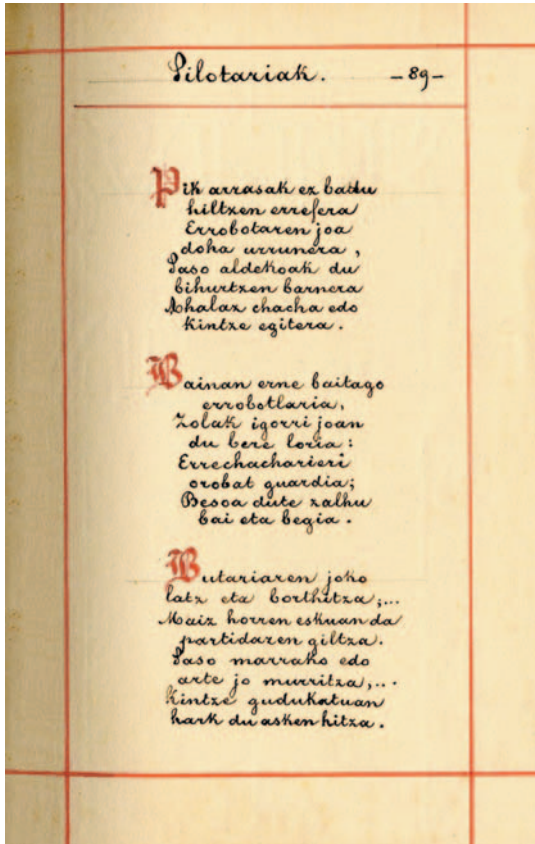 Pilotariak. -89-
Pik arrasak ez badu
hiltzen errefera
Errobotaren joa
doha urrunera,
Paso aldekoak du
bihurtzen barnera
Ahalaz chacha edo
kintze egitera.
Bainan erne baitago
errobotlaria,
Zolak igorri joan
du bere loria:
Errechacharieri
orobat guardia;
Besoa dute zalhu
bai eta begia.
Butariaren joko
latz eta borthitza;...
Maiz horren eskuan da
partidaren giltza.
Paso marrako edo
arte jo murritza,...
Kintze gudukatuan
hark du asken hitza.